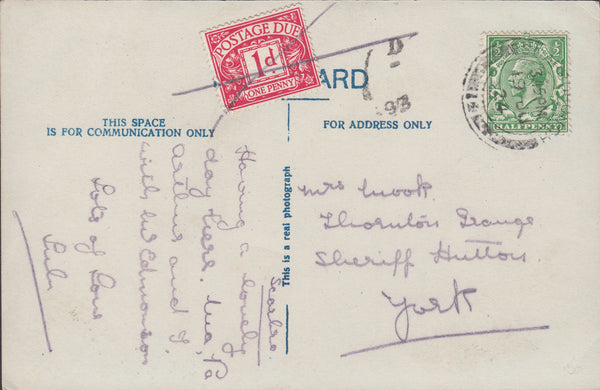 POSTAGE DUE
1d
ONE PENNY
ARD
D
93
HALFPENNY
THIS SPACE
IS FOR COMMUNICATION ONLY
FOR ADDRESS ONLY
This is a real photograph
Scarbro.
Having a lovely
day here. Ma, Pa
Arthur and I.
with Mr Edmondson
Lots of love
Mrs Mook
Thornton Grange
Sheriff Hutton
York